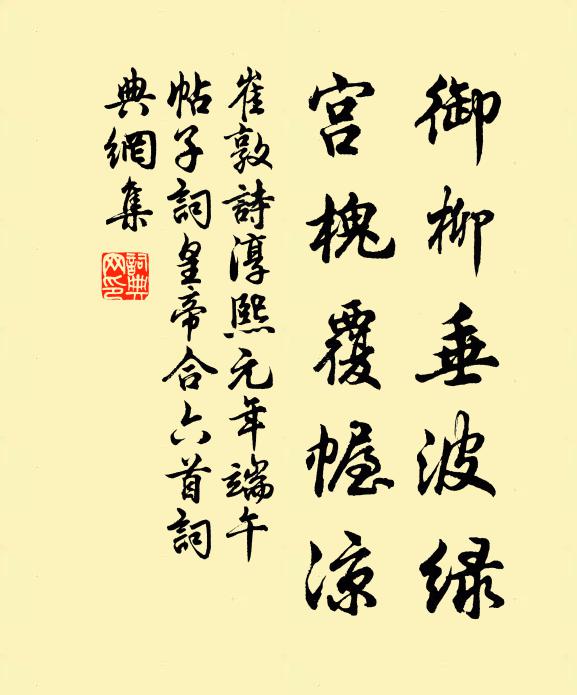 御柳垂波緑
宫槐覆幄涼
崔敦詩淳熙元年端午
帖子詞皇帝合六首詞
典網集
詞典网印